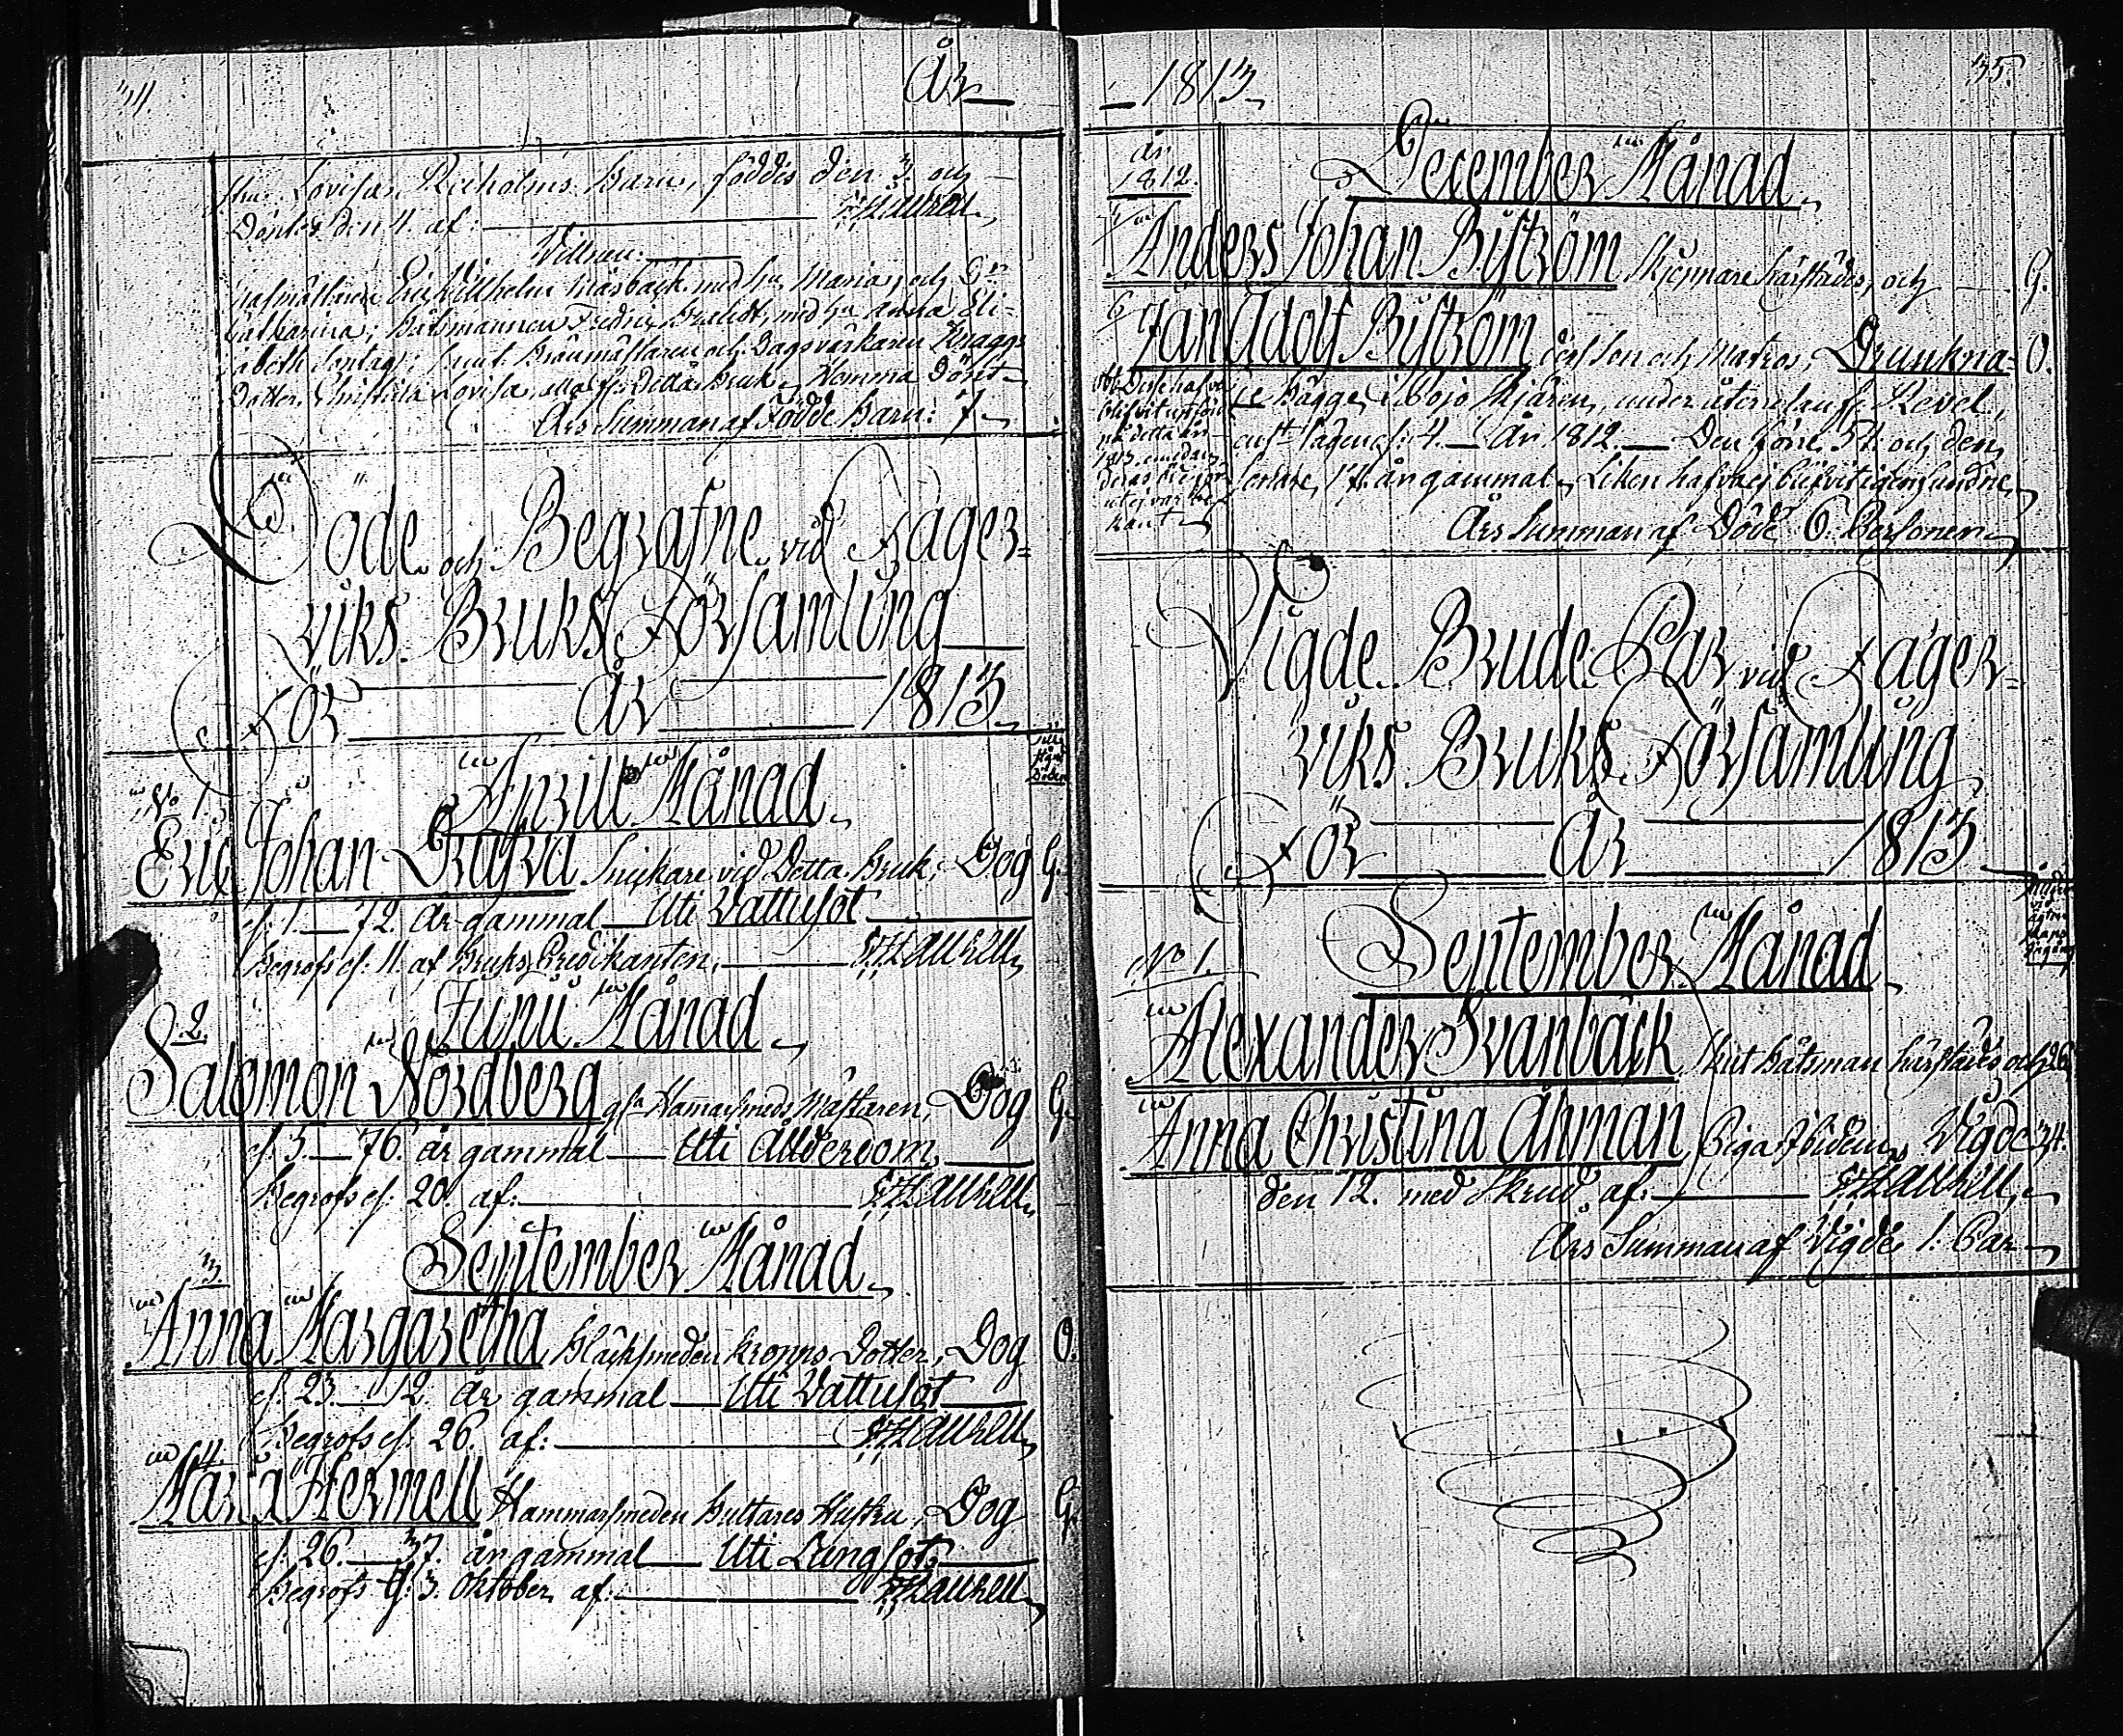 34
År
Lovisa Reiholms Barn, föddes den 3. och
Döptes den 4. af: F:H:Laurell
Wittnen:
Eric Willhelm med hu Maria, och
Catharina; Båtsmannen Fredric med hu Anna Eli-
sabeth samt Bräumästaren och Dagsvärkaren
Dotter, Christina Lovisa, alla fr: Detta Bruk, Hemma Döpt
Års Summan af Födde Barn: 7
Döde och Begrafne vid Fager-
viks Bruks Församling
För År 1813
Aprill Månad
No 1.
Eric Johan Gräfva Snickare vid Detta Bruk, Dog G.
d: 1 72. år gammal Uti Vattusot
Begrofs d: 11. af Bruks Predikanten, F:H:Laurell
Junii Månad
2.
Salomon Nordberg gla Hamarsmeds Mästaren, Dog G.
d: 5 76. år gammal Uti Ållderdom
Begrofs d: 20. af: F:H:Laurell
September Månad
3.
Anna Margaretha Kläcksmeden Kropps Dotter, Dog O.
d: 23. 12. år gammal Uti Vattusot
Begrofs d: 26. af: F:H:Laurell
4.
Maria Hermell Hammarsmeden Bultares Hustru, Dog G.
d: 26. 37. år gammal Uti Lungsot
Begrofs d: 3. Oktober af: F:H:Laurell
1813
35.
år
1812.
December Månad
5
Anders Johan Byström Skjeppare härstädes, och G.
6
Jan Adolf Byström dess son och Matros, Drunkna- O.
de bägge i Bojo Skjären, under återresan fr: Revel,
Dagen d: 4. År 1812. Den förre 51. och den
senare, 17. år gammal. Liken hafva ej blifvit igenfundne
Obs Desse hafva
blifvit
på detta år
1813. emedan
deras
ute var
kant
Års Summan af Döde 6. Personer
Vigde Brude-Par vid Fager-
viks Bruks Församling
För År 1813
September Månad
No 1.
Alexander Svanbäck Skut Båtsman härstädes, och 26.
Anna Christina Åhman Piga Ibidem, Vigde 34.
den 12. med Skrud af: F:H:Laurell,
Års Summan af Vigde 1. Par